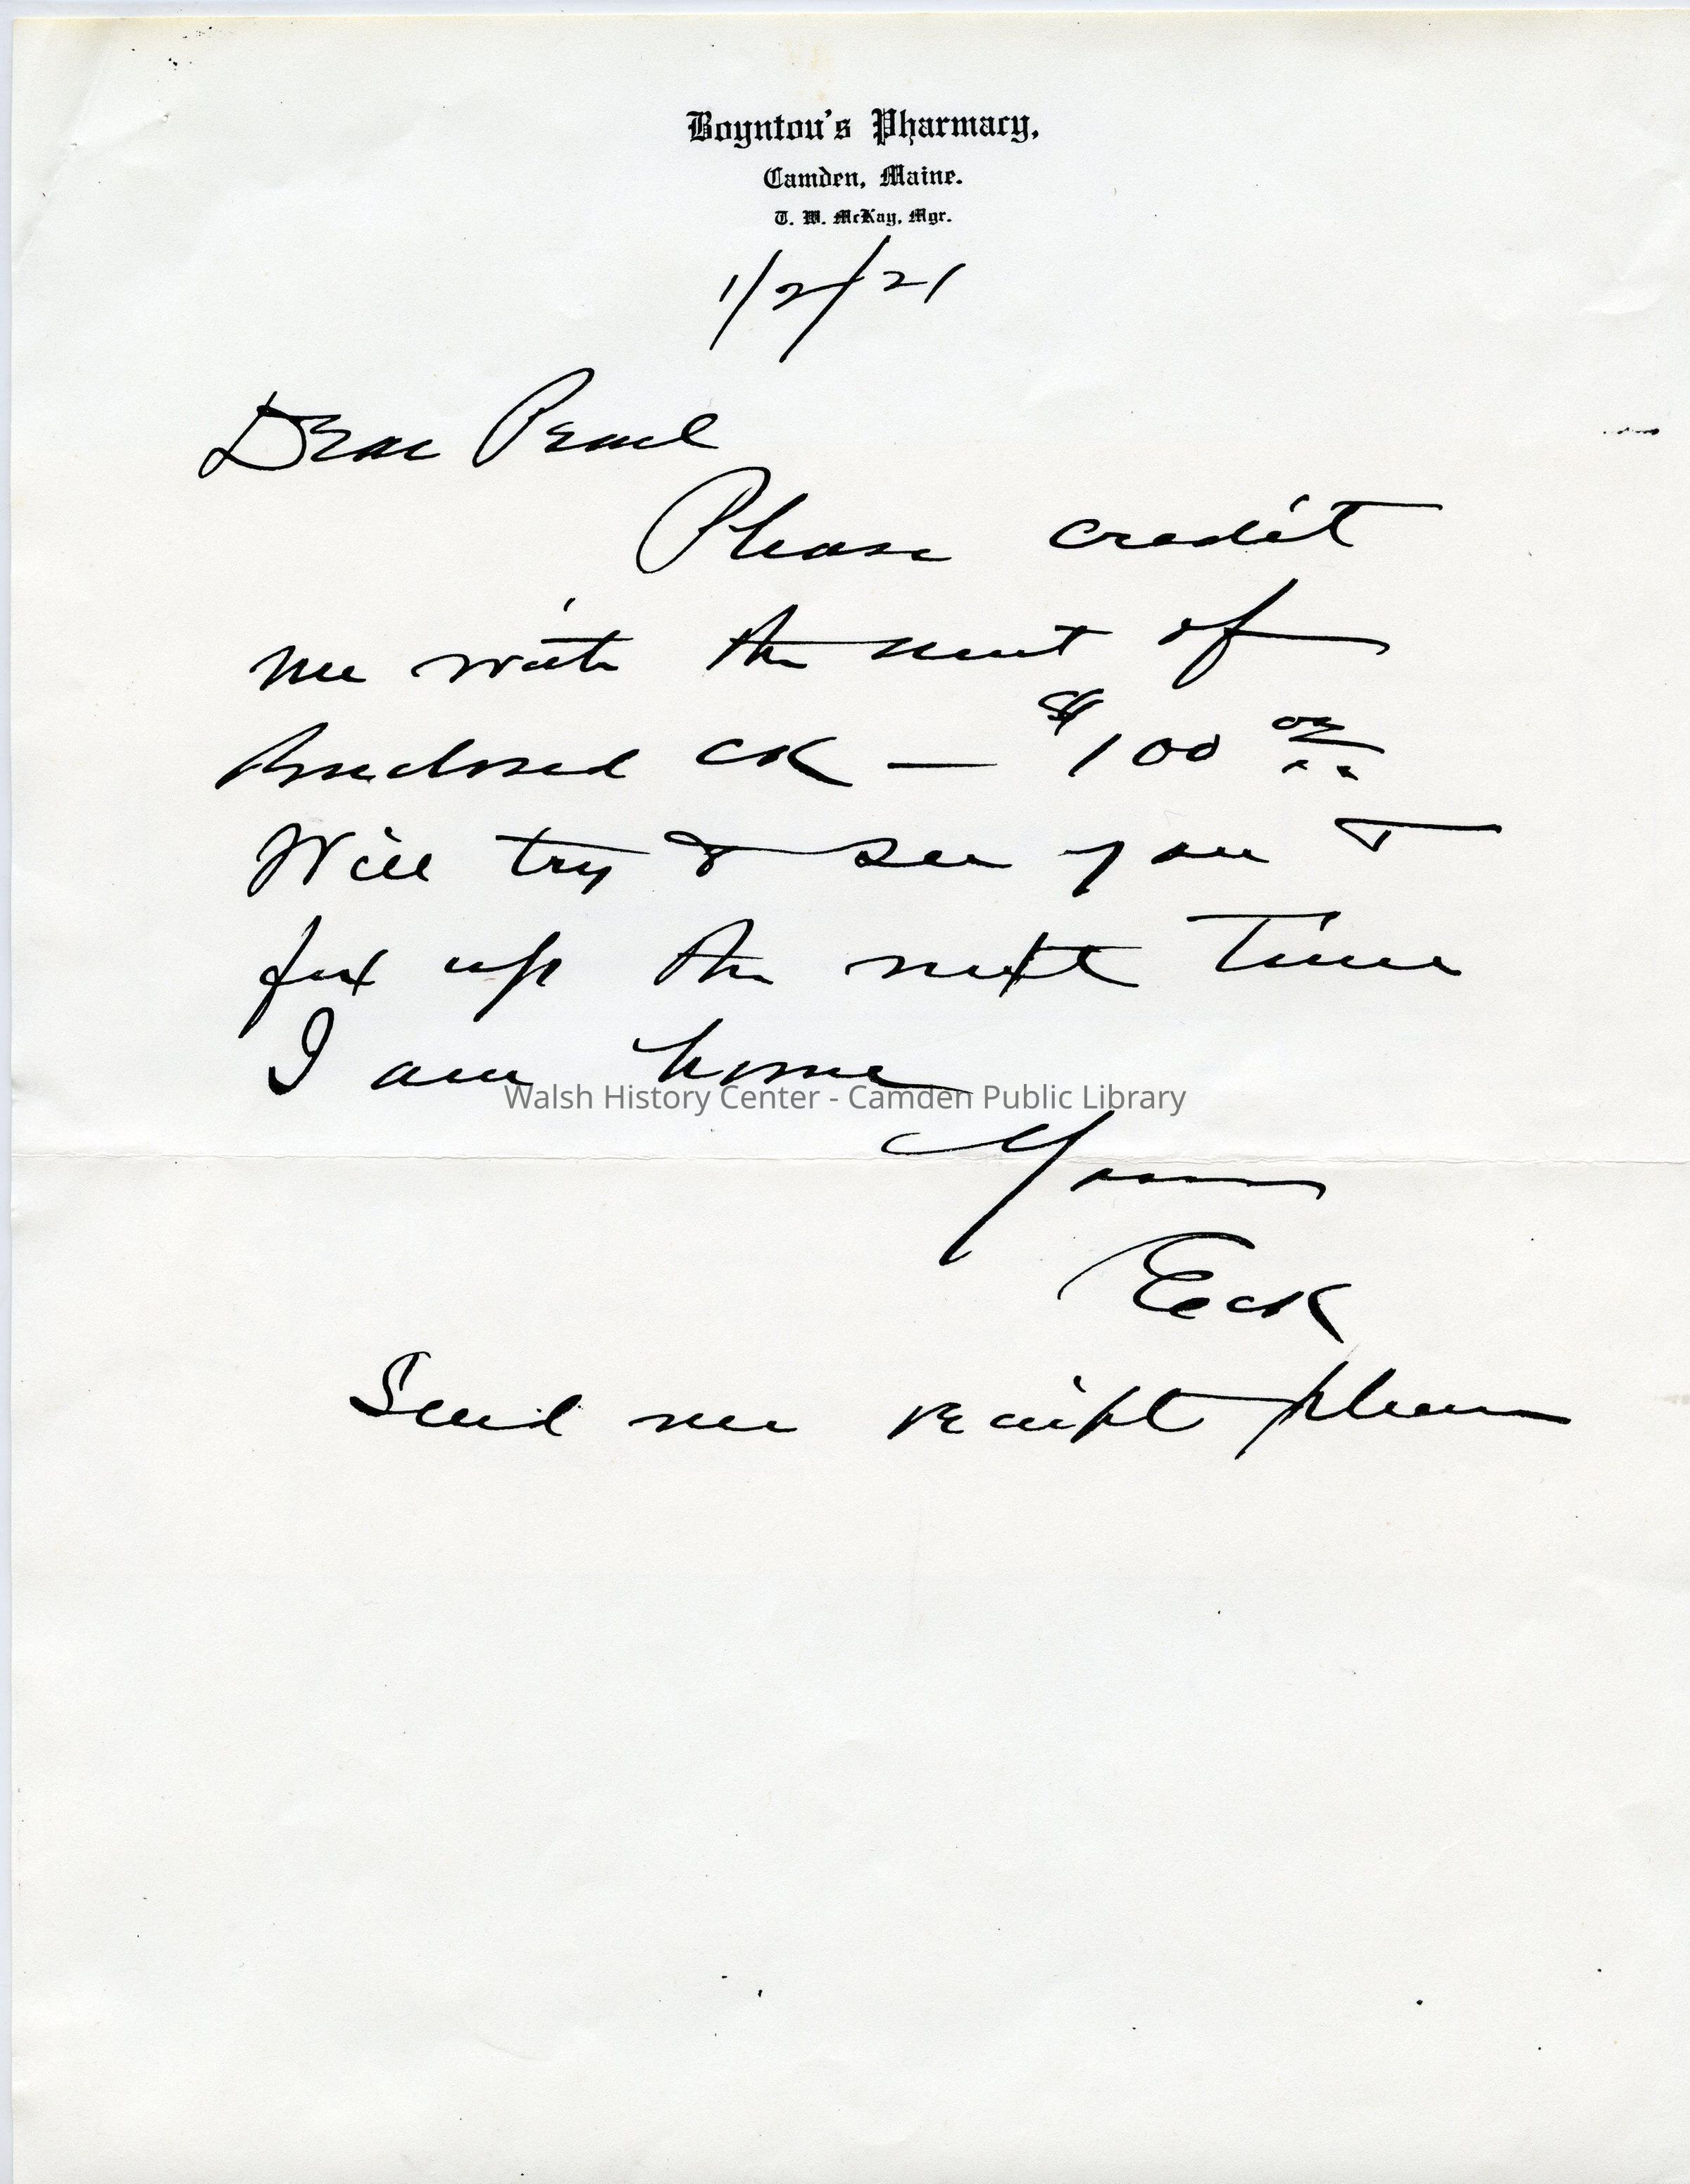 Boynton's Pharmacy,
Camden, Maine.
T. W. McKay, Mgr.
1/2/21
Dear Pearl
Please credit
me with the amt of
enclosed ck — $100 00/xx
Will try & see you &
fix up the next time
I am home
Walsh History Center - Camden Public Library
Yours
Eck
Send me receipt please